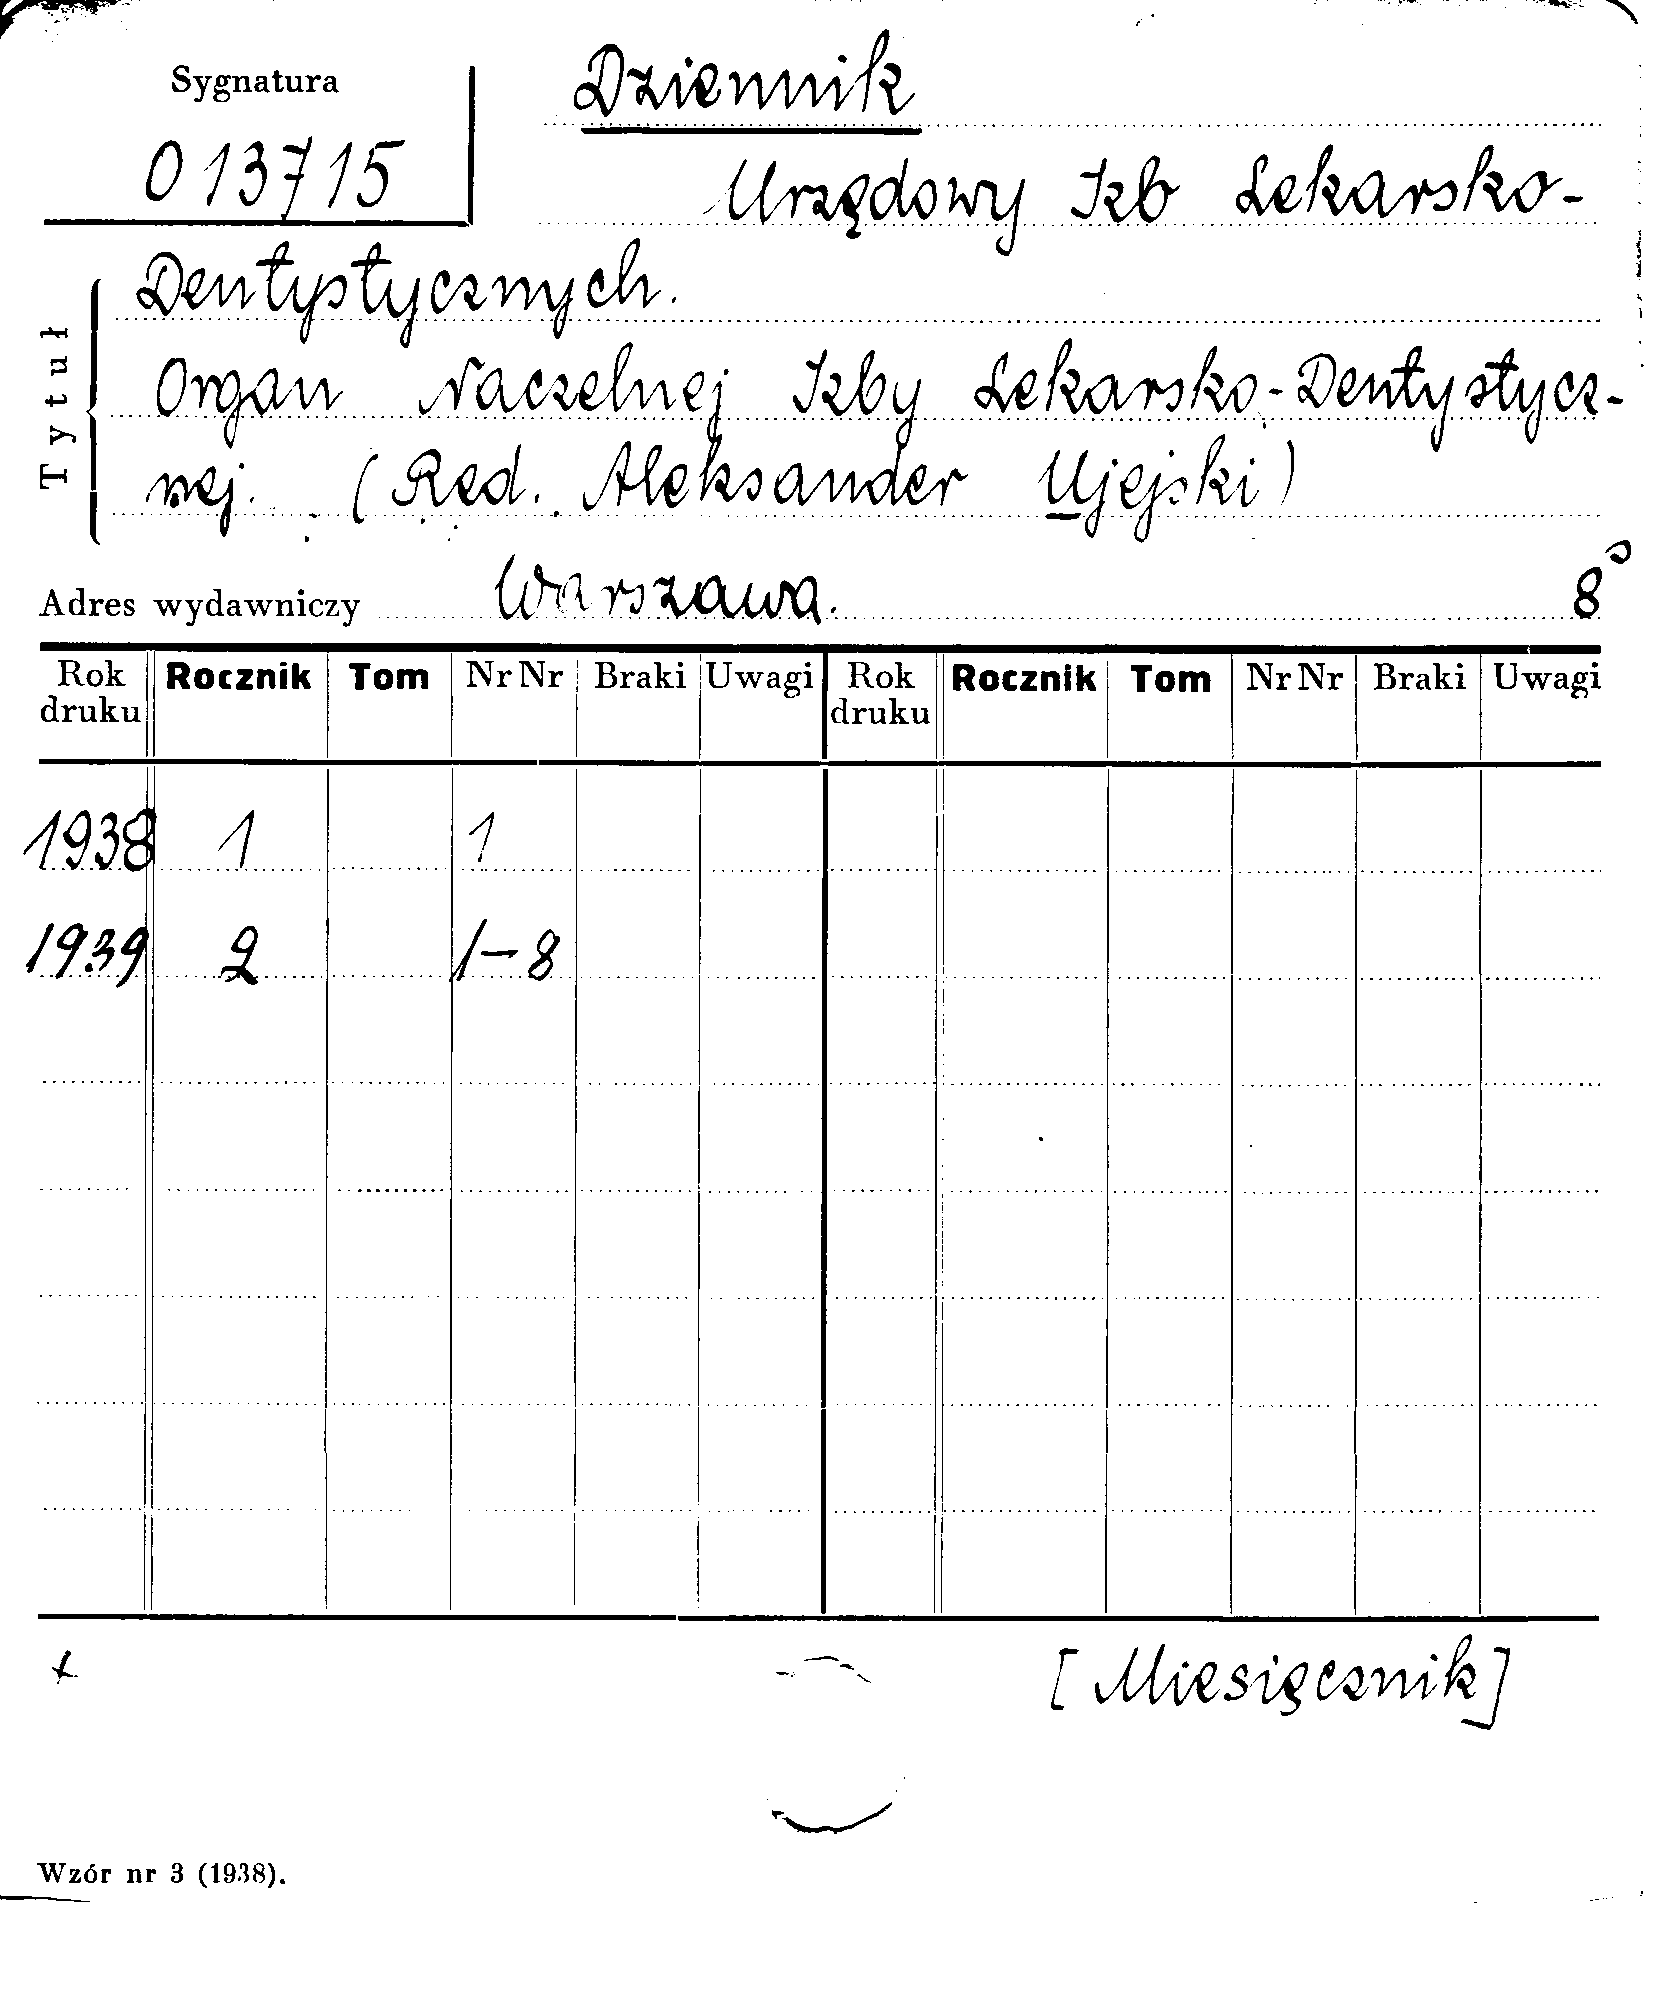 Sygnatura
013715
Dziennik
Urzędowy Izb Lekarsko-
Dentystycznych.
Organ Naczelnej Izby Lekarsko-Dentystycz-
nej. (Red. Aleksander Ujejski)
Tytuł
Adres wydawniczy Warszawa. 8°
Rok druku Rocznik Tom Nr Nr Braki Uwagi Rok druku Rocznik Tom Nr Nr Braki Uwagi
1938 1 1
1939 2 1-8
+ [Miesięcznik]
Wzór nr 3 (1938).